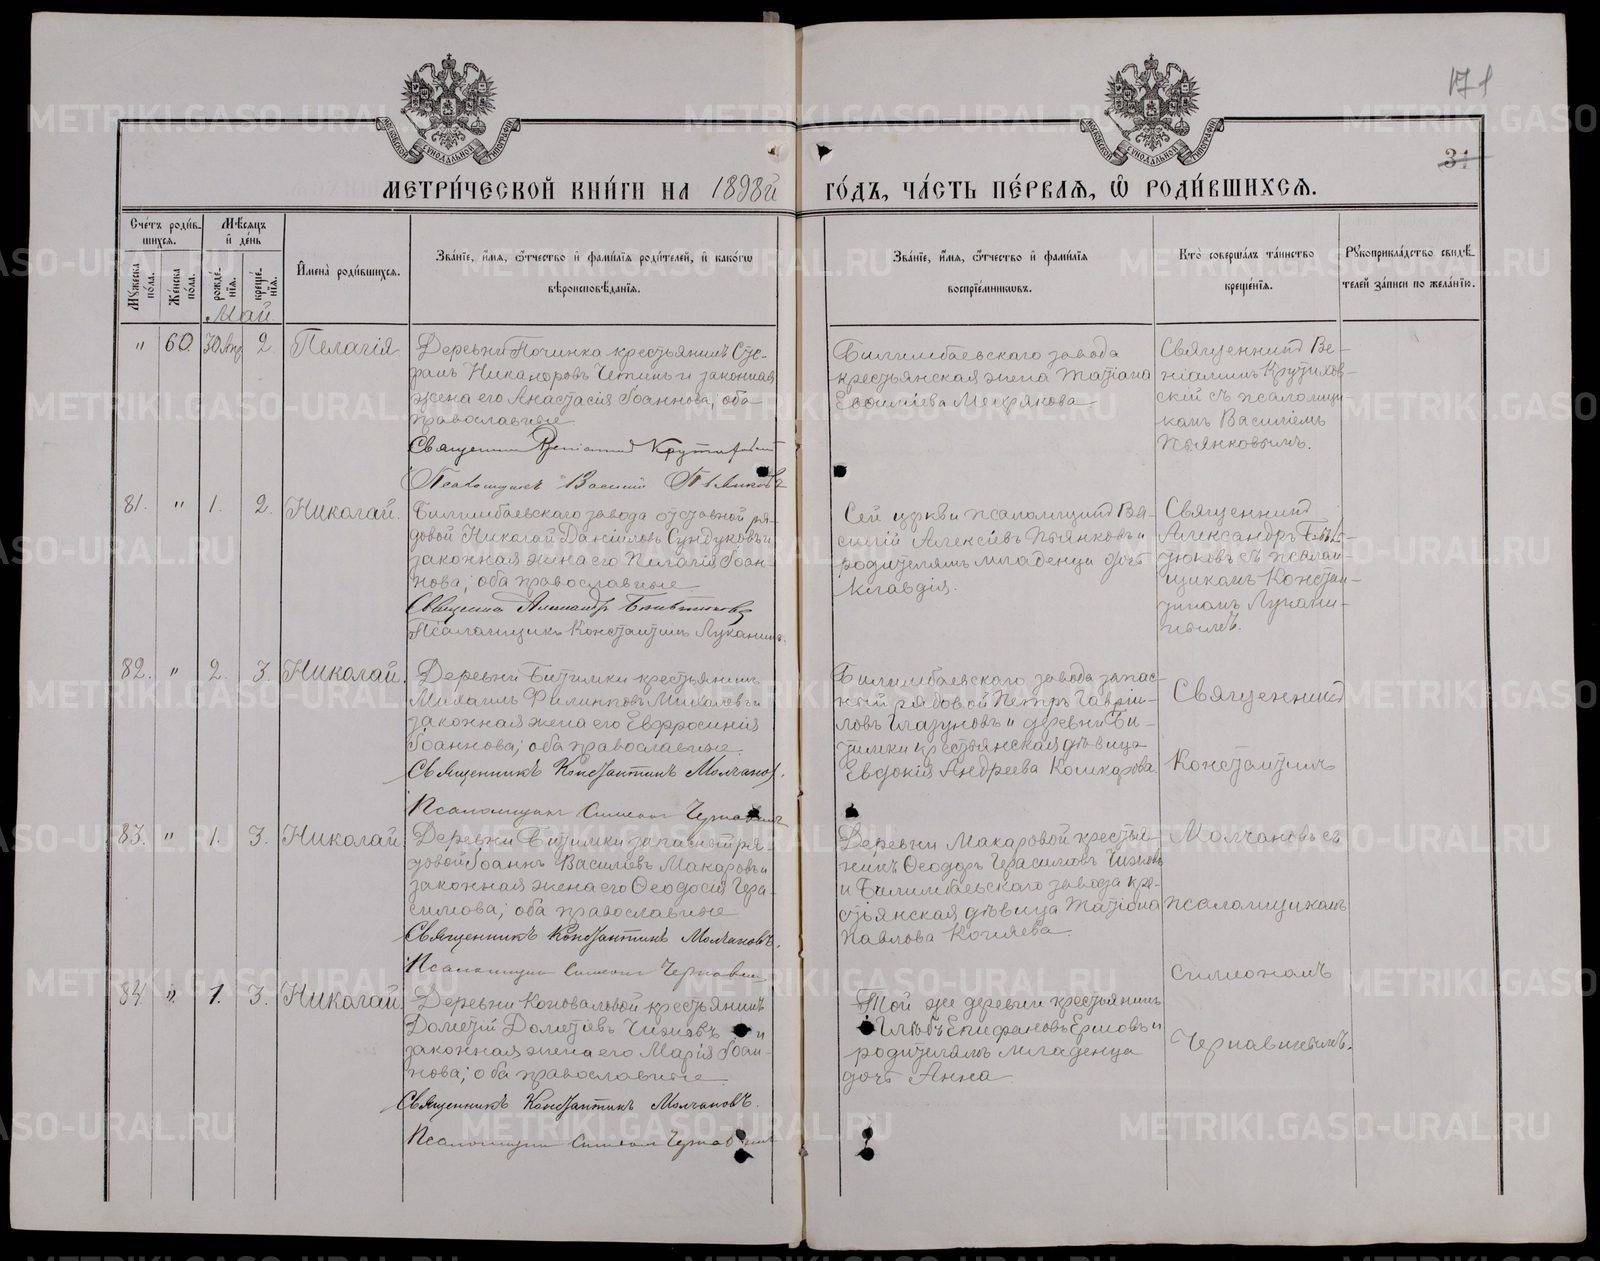 171
31
МЕТРИ́ЧЕСКОЙ КНИ́ГИ НА 1898й ГО́ДЪ, ЧА́СТЬ ПЕ́РВАЯ, Ѡ РОДИ́ВШИХСЯ.
Сче́тъ роди́в-
шихся.
Му́жеска по́ла.
Же́нска по́ла.
Мѣ́сяцъ и́ де́нь
рожде́нїя.
креще́нїя.
И҆мена̀ роди́вшихся.
Зва́нїе, и҆́мя, ѻ҆́тчество и҆ фами́лїя роди́телей, и҆ како́гѡ
вѣроисповѣ́данїя.
Зва́нїе, и҆́мя, ѻ҆́тчество и҆ фами́лїя
воспрїе́мникѡвъ.
Кто̀ соверша́лъ та́инство
креще́нїя.
Рꙋкоприкла́дство свидѣ́-
телей за́писи по жела́нїю.
Май
" 60. 30 Апр 2. Пелагія
Деревни Починка крестьянинъ Сте-
фанъ Никаноровъ и законная
жена его Анастасія Іоаннова; оба
православные
Священникъ Веніаминъ
Псаломщикъ Василій Пьянковъ
Билимбаевскаго завода
крестьянская жена Татіана
Мехрякова
Священникъ Ве-
ніаминъ Крутихов-
скій съ псаломщи-
комъ Василіемъ
Пьянковымъ.
81. " 1. 2. Николай.
Билимбаевскаго завода отставной ря-
довой Николай Даниловъ Сундуковъ и
законная жена его Пелагія Іоан-
нова; оба православные
Священникъ Александръ
Псаломщикъ Константинъ Луканинъ.
Сей церкви псаломщикъ Ва-
силій Алексѣевъ Пьянковъ и
родителямъ младенца дочь
Клавдія.
Священникъ
Александръ
съ псалом-
щикомъ Констан-
тиномъ Лукани-
нымъ.
82. " 2. 3. Николай.
Деревни Битимки крестьянинъ
Михаилъ Филипповъ Михалевъ и
законная жена его Евфросинія
Іоаннова; оба православные.
Священникъ Константинъ Молчановъ.
Псаломщикъ Симеонъ Чернавинъ
Билимбаевскаго завода запас-
ный рядовой Петръ Гаврии-
ловъ Глазуновъ и деревни Би-
тимки крестьянская дѣвица
Евдокія Андреева Кошкарова.
Священникъ
Константинъ
Молчановъ съ
псаломщикомъ
Симеономъ
Чернавинымъ.
83. " 1. 3. Николай
Деревни Битимки запасный ря-
довой Іоаннъ Васильевъ Макаровъ и
законная жена его Ѳеодосія Гера-
симова; оба православные
Священникъ Константинъ Молчановъ.
Псаломщикъ Симеонъ Чернавинъ
Деревни Макаровой крестья-
нинъ Ѳеодоръ Герасимовъ Чижовъ
и Билимбаевскаго завода кре-
стьянская дѣвица Татіана
Павлова Коняева.
84. " 1. 3. Николай
Деревни Коноваловой крестьянинъ
Дометій Дометіевъ Чижовъ и
законная жена его Марія Іоан-
нова; оба православные
Священникъ Константинъ Молчановъ.
Псаломщикъ Симеонъ Чернавинъ
Той же деревни крестьянинъ
Глѣбъ Епифановъ Ершовъ и
родителямъ младенца
дочь Анна
METRIKI.GASO-URAL.RU